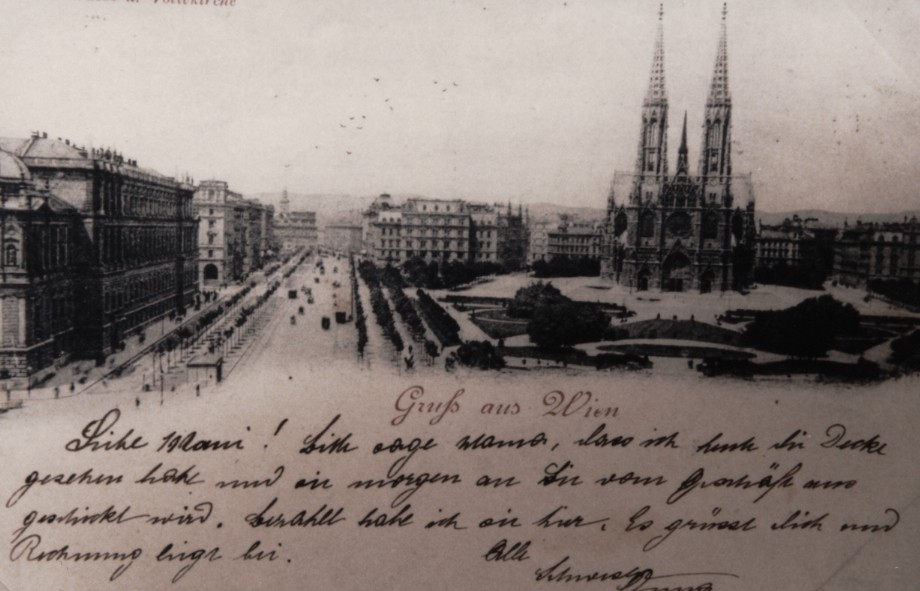 Votivkirche
Gruß aus Wien
Liebe Mani! Bitte sage Mama, dass ich heut die Decke
gesehen habe und sie morgen an Sie vom Geschäft aus
geschickt wird. Bezahlt habe ich sie hier. Es grüsst dich und
Rechnung liegt bei. Alle
Schwester